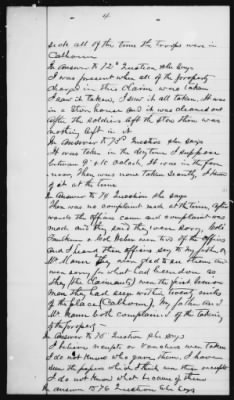 4
sick all of the time the troops were in
Calhoun
In Answer to 72d Question she says
I was present when all of the property
charged in this claim were taken
I saw it taken, I saw it all taken. It was
in a store house and it was cleaned out
After the soldiers left the store there was
nothing left in it
In Answer to 73d Question she says
It was taken in the day time I suppose
between 9 & 10 Oclock. It was in the fore
noon, There was none taken secretly I knew
of it at the time
In Answer to 74 Question she says
There was no complaint made at the time, After
wards the officers came and complaint was
made and they said they were sorry, Cols
and Col were two of the officers
and I heard these officers say to my husband
Mr they were glad to see them and
were sorry for what had been done as
they (the Claimants) were the first Union
men they had seen within twenty miles
of the place (Calhoun), My father and
Mr both complained of the taking
of the property
In Answer to 75 Question she says
I believe receipts or vouchers were taken
I do not know who gave them, I have
seen the papers which I think were then receipts
I do not know what became of them
In answer to 76 Question she says